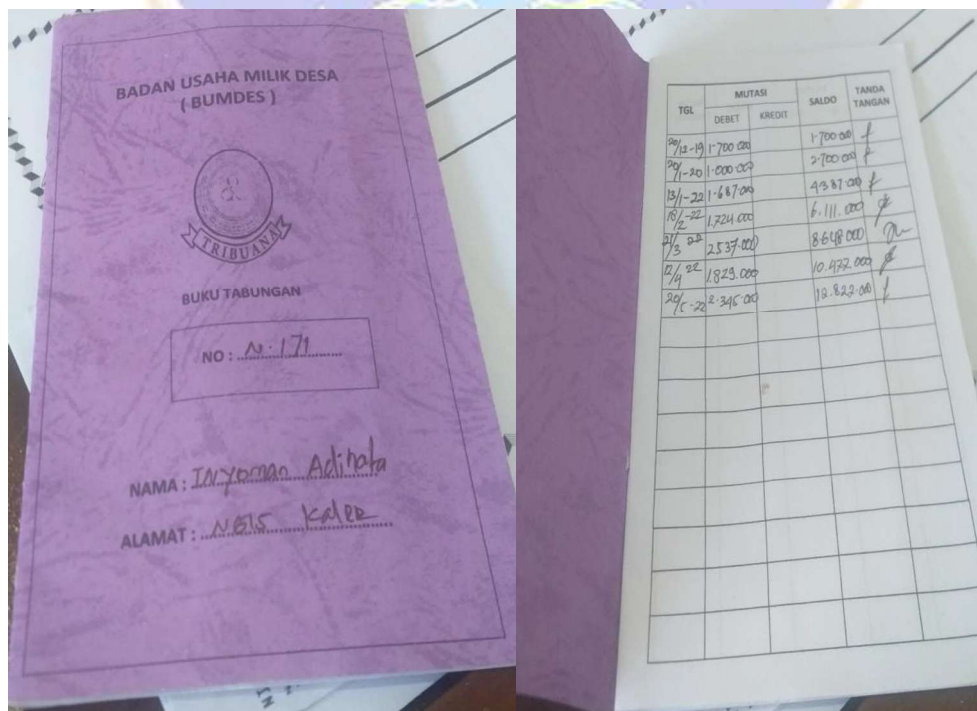 BADAN USAHA MILIK DESA
( BUMDES )
TRIBUANA
BUKU TABUNGAN
NO : N. 171
NAMA : I Nyoman Adinata
ALAMAT : Kaler
TGL MUTASI SALDO TANDA TANGAN
DEBET KREDIT
20/12-19 1.700.000 1.700.000
20/1-20 1.000.000 2.700.000
13/1-22 1.687.000 4.387.000
18/2-22 1.724.000 6.111.000
21/3 22 2.537.000 8.648.000
12/4 22 1.829.000 10.477.000
20/5-22 2.345.000 12.822.000